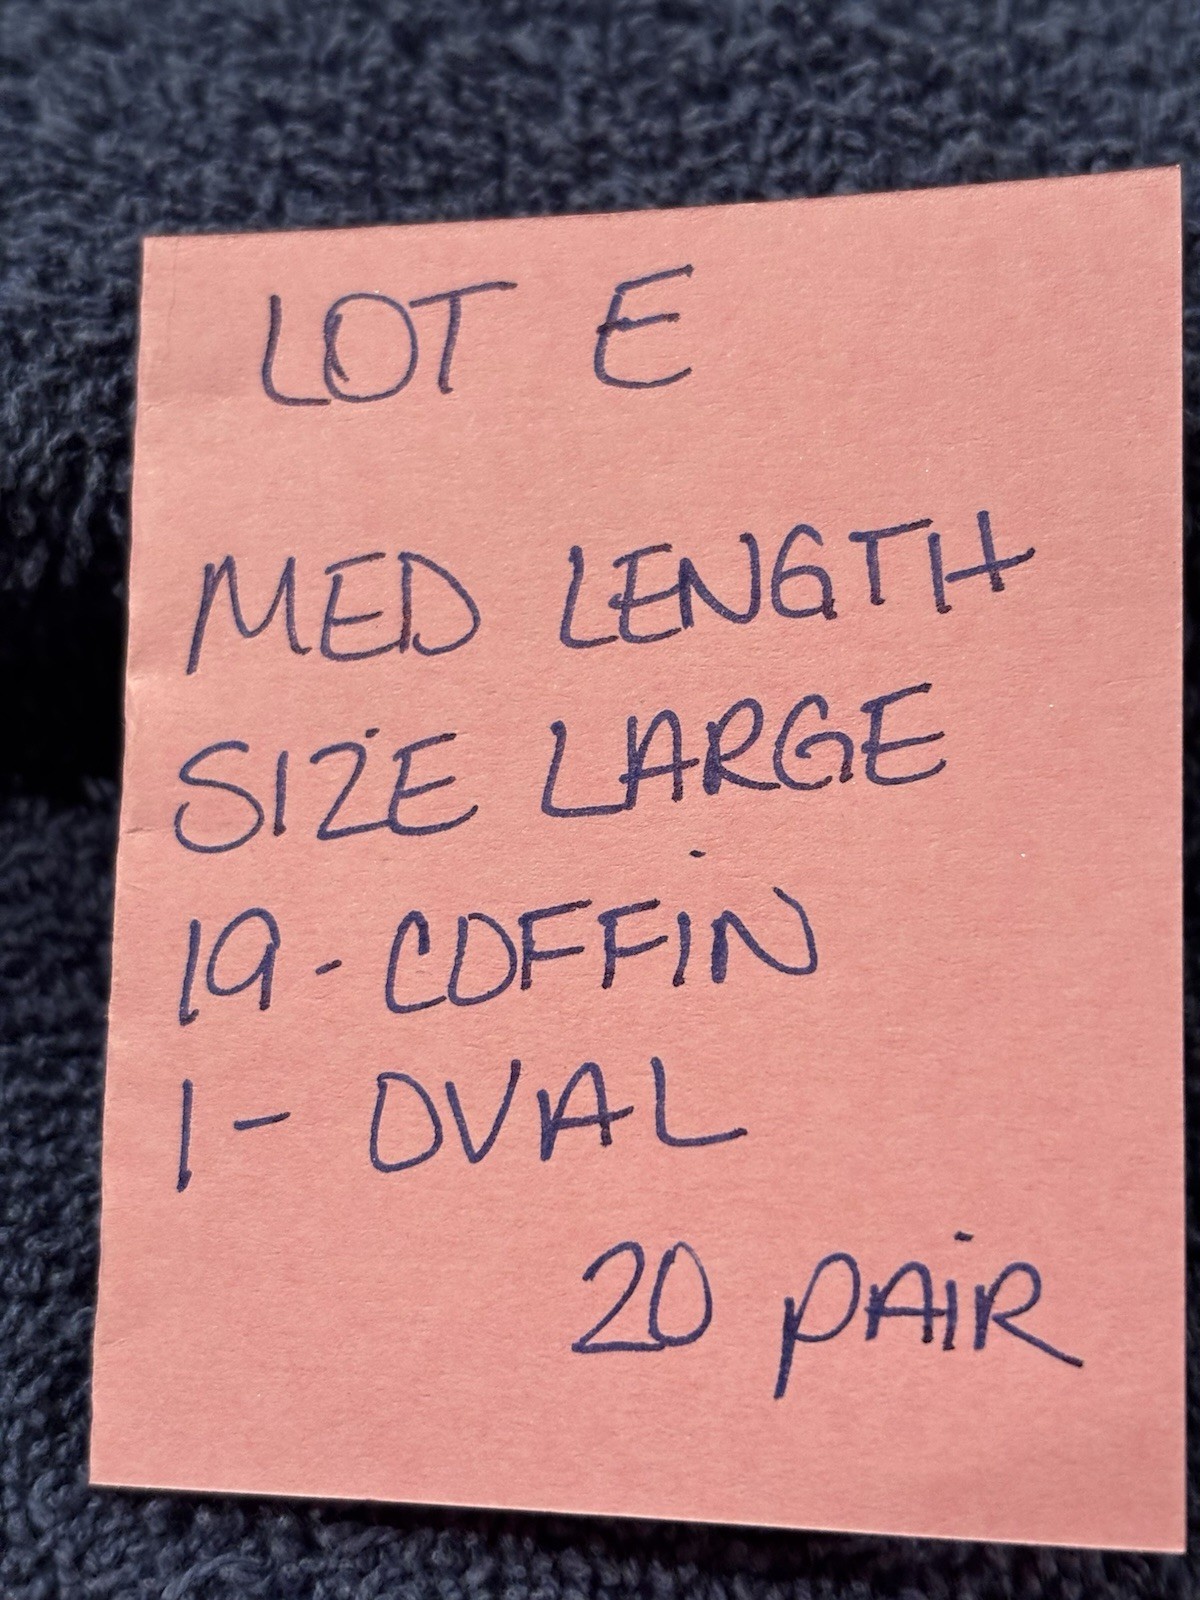 LOT E
MED LENGTH
SIZE LARGE
19 - COFFIN
1 - OVAL
20 PAIR